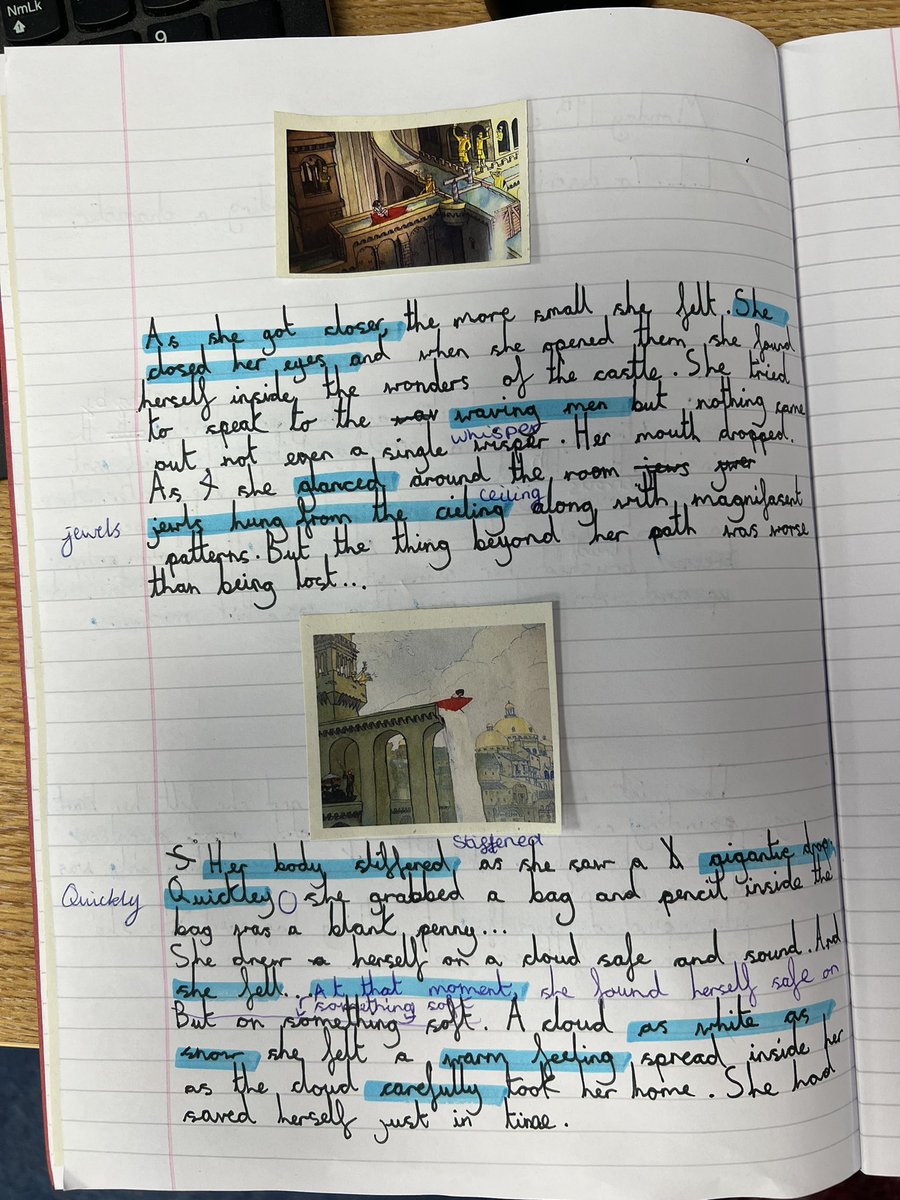 NmLk
9
As she got closer, the more small she felt. She
closed her eyes and when she opened them she found
herself inside the wonders of the castle. She tried
to speak to the wav waving men but nothing came
whisper
out, not even a single wisper. Her mouth dropped.
As she glanced around the room jews
ceiling
jewels
jewls hung from the cieling along with magnifasent
patterns. But the thing beyond her path was worse
than being lost...
Stiffened
S Her body stiffered as she saw a gigantic drop.
Quickly
Quickley she grabbed a bag and pencil inside the
bag was a blank penny...
She drew a herself on a cloud safe and sound. And
she fell... At that moment, she found herself safe on
something soft
But on something soft. A cloud as white as
snow she felt a warm feeling spread inside her
as the cloud carefully took her home. She had
saved herself just in time.